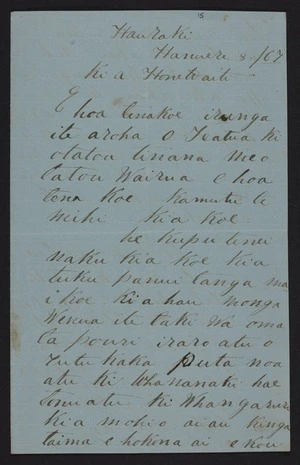 15
Hauraki
Hanuere 8 /67
Ki a Honetaiti
E hoa tinakoe irunga
ite aroha O Teatua ki
otatou tinana me o
tatou Wairua E hoa
tena Koe Kamutu te
mihi Kia Koe
he kupu tenei
naku kia koe kia
tuku panui tanga ma
i koe Kia hau monga
Wenua ite taki wa o ma
ta pouri iraro atu o
Tutukaka puta noa
atu ki Whananaki hae
tonuatu ki Whangaruru
Kia mohio ai au kinga
taima e hokona ai e kou